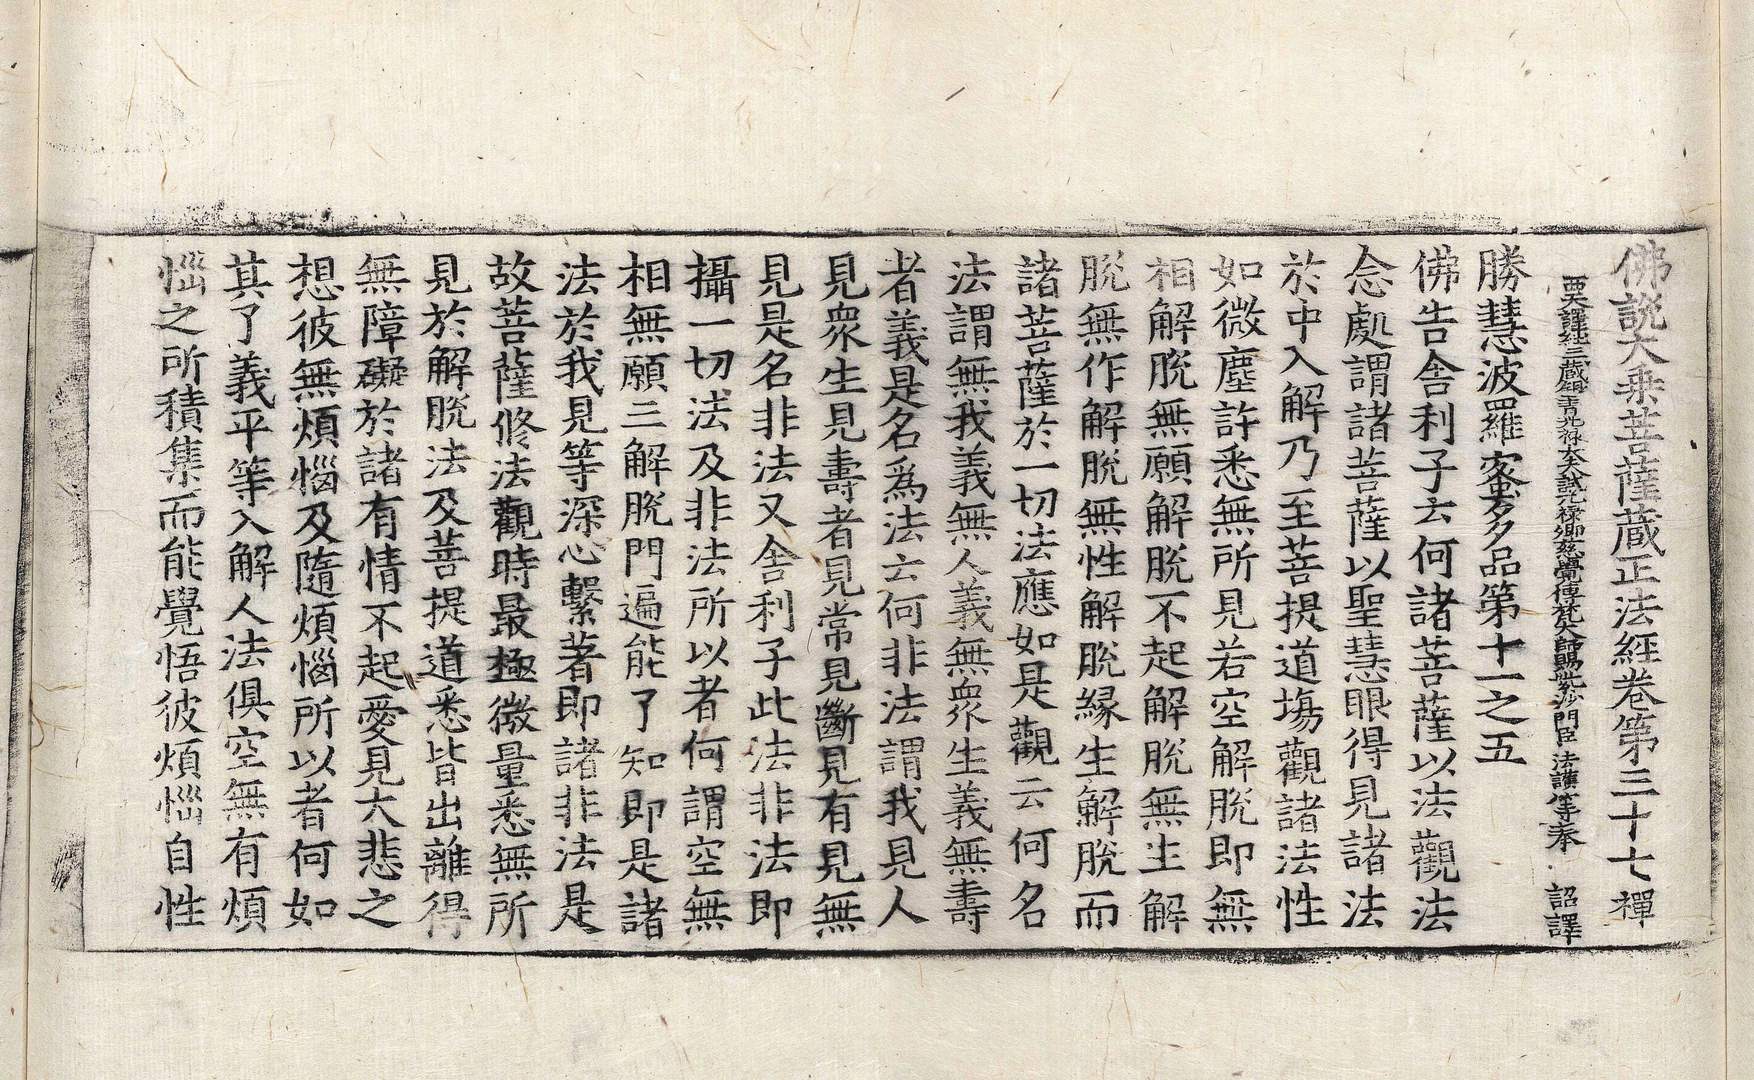 佛說大乘菩薩藏正法經卷第三十七禪
西天譯經三藏銀青光祿大夫試光祿卿慈覺傳梵大師賜紫沙門臣法護等奉　詔譯
勝慧波羅蜜多品第十一之五
佛告舍利子云何諸菩薩以法觀法
念處謂諸菩薩以聖慧眼得見諸法
於中入解乃至菩提道場觀諸法性
如微塵許悉無所見若空解脫即無
相解脫無願解脫不起解脫無生解
脫無作解脫無性解脫緣生解脫而
諸菩薩於一切法應如是觀云何名
法謂無我義無人義無衆生義無壽
者義是名爲法云何非法謂我見人
見衆生見壽者見常見斷見有見無
見是名非法又舍利子此法非法即
攝一切法及非法所以者何謂空無
相無願三解脫門遍能了知即是諸
法於我見等深心繫著即諸非法是
故菩薩修法觀時最極微量悉無所
見於解脫法及菩提道悉皆出離得
無障礙於諸有情不起愛見大悲之
想彼無煩惱及隨煩惱所以者何如
其了義平等入解人法俱空無有煩
惱之所積集而能覺悟彼煩惱自性